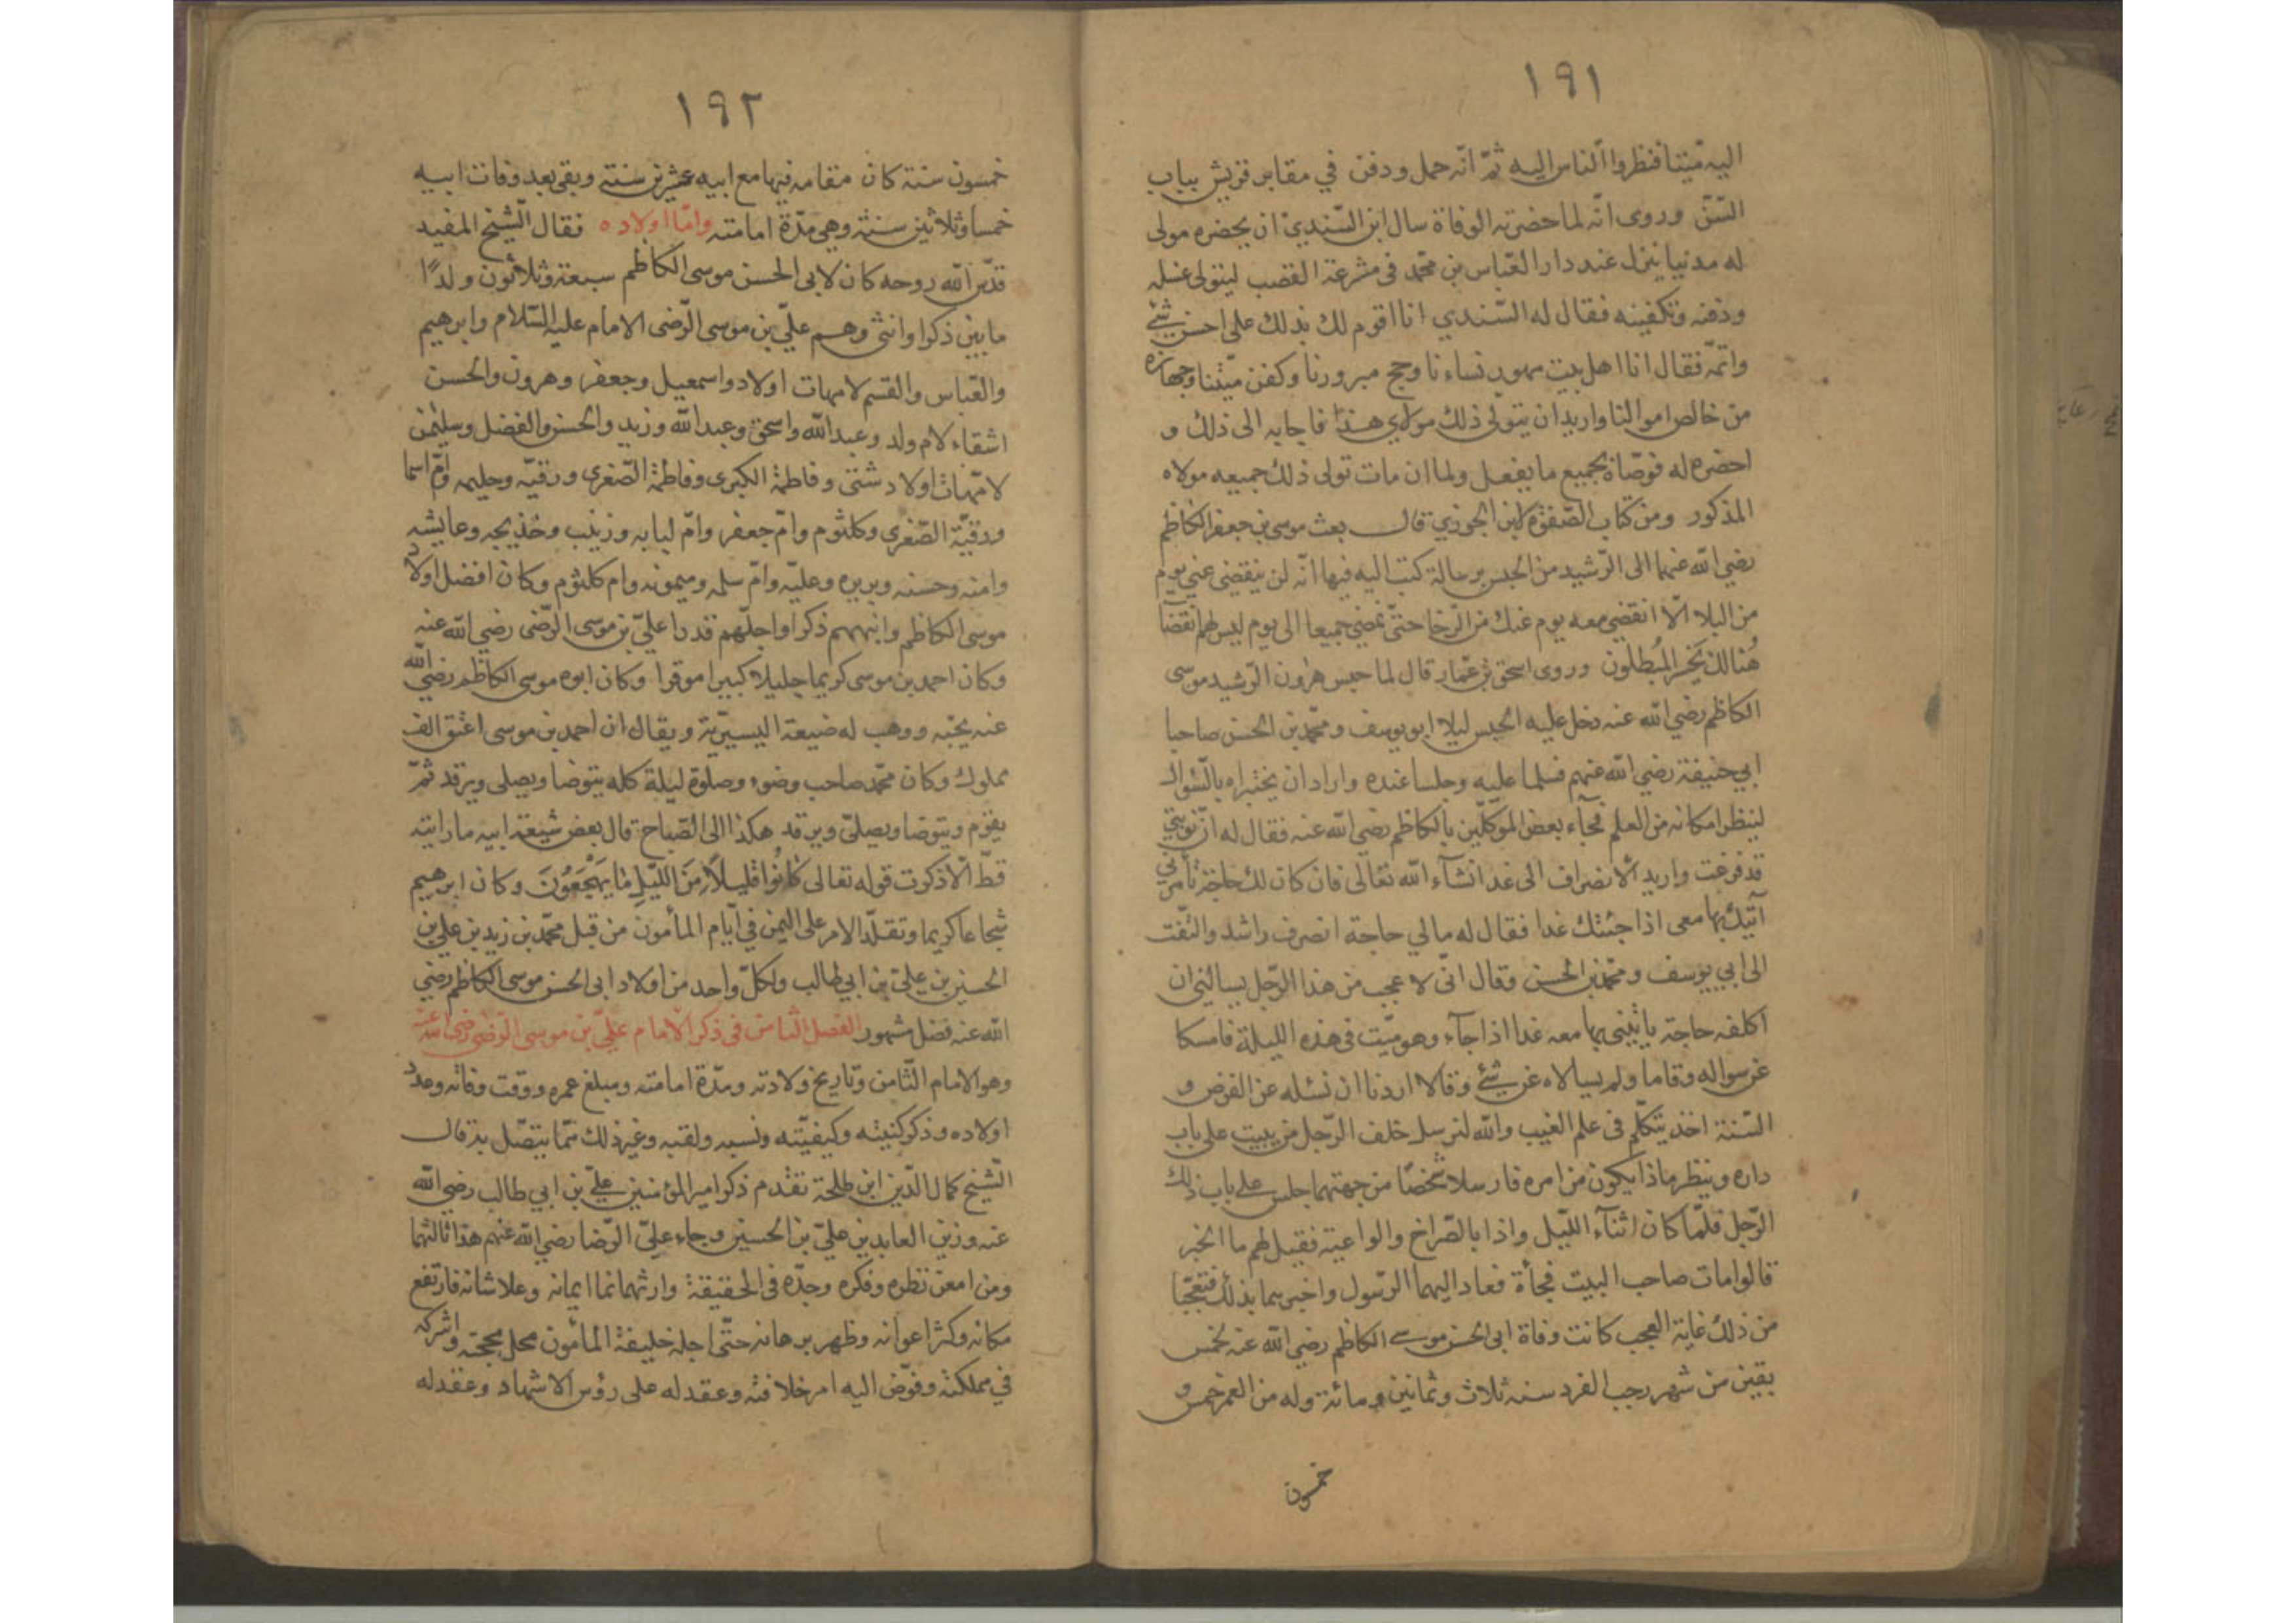 ١٩١
اليه ميّتا فنظروا الناس اليه ثمّ انّه حمل ودفن في مقابر قريش بباب
التبن وروى انّه لما حضرته الوفاة سال ابن السّندي ان يحضره مولى
له مدنيا ينزل عند دار العبّاس بن محمّد فى مشرعة القصب ليتولى غسله
ودفنه وتكفينه فقال له السّندي انا اقوم لك بذلك على احسن شئ
واتمّه فقال انا اهل بيت مهور نساءنا وحج مبرورنا وكفن ميّتنا وجهازه
من خالص اموالنا واريد ان يتولّى ذلك مولاي هذا فاجابه الى ذلك و
احضره له فوصّاه بجميع ما يفعل ولما ان مات تولى ذلك جميعه مولاه
المذكور ومن كتاب الصّفوة لابن الجوزي قال بعث موسى بن جعفر الكاظم
رضي الله عنهما الى الرّشيد من الحبس برسالة كتب اليه فيها انّه لن ينقضى عنى يوم
من البلا الّا انقضى معه يوم عنك من الرّخا حتّى نمضى جميعا الى يوم ليس لهم انقضآ
هُنالك يَخسر المُبطلون وروى اسحق بن عمّار قال لما حبس هٰرون الرّشيد موسى
الكاظم رضي الله عنه دخل عليه الحبس ليلا ابو يوسف ومحمّد بن الحسن صاحبا
ابي حنيفة رضي الله عنهم فسلما عليه وجلسا عنده وارادان يختبراه بالسّئوال
لينظرا مكانه من العلم فجآء بعض الموكلّين بالكاظم رضي الله عنه فقال له انّ نوبتي
قد فرغت واريد الأنصراف الى غد انشآء الله تعالى فان كان لك حاجة تأمرني
آتيك بها معى اذا جئتك غدا فقال له مالي حاجة انصرف راشد والتفت
الى ابي يوسف ومحمّد بن الحسن وقال انّى لا عجب من هذا الرّجل يسالني ان
اكلفه حاجة ياتيني بها معه غدا اذا جآء وهو ميّت فى هذه الليلة فامسكا
عن سواله وقاما ولم يسالاه عن شئ وقالا اردنا ان نسئله عن الفرض و
السّنة اخذ يتكلّم فى علم الغيب والله لنرسل خلف الرّجل من يبيت على باب
داره وينظر ماذا يكون من امره فارسلا شخصًا من جهتهما جلس على باب ذلك
الرّجل فلمّا كان اثنآء اللّيل واذا بالصّراخ والواعية فقيل لهم ما الخبر
قالوا مات صاحب البيت فجأة فعاد اليهما الرّسول واخبرهما بذلك فتعجّبا
من ذلك غاية العجب كانت وفاة ابى الحسن موسى الكاظم رضي الله عنه لخمس
بقين من شهر رجب الفرد سنه ثلاث وثمانين ومائة وله من العمر خمس و
خمسون
١٩٢
خمسون سنة كان مقامه فيها مع ابيه عشرين سنة وبقى بعد وفات ابيه
خمسا وثلاثين سنة وهى مدّة امامته وامّا اولاده فقال الشّيخ المفيد
قدّس الله روحه كان لابى الحسن موسى الكاظم سبعة وثلاثون ولدًا
مابين ذكر اوانثى وهم علىّ بن موسى الرّضى الامام عليه السّلام وابرهيم
والعبّاس والقسم لامهات اولاد واسمعيل وجعفر وهرون والحسن
اشقاء لام ولد وعبدالله واسحق وعبدالله وزيد والحسن والفضل وسليمٰن
لامّهات اولاد شتى وفاطمة الكبرى وفاطمة الصّغرى ورقيّه وحليمه وامّ اسما
ورقيّة الصّغرى وكلثوم وامّ جعفر وامّ لبابه وزينب وخذيجه وعايشه
وامنه وحسنه وبريره وعليّه وامّ سلمه وميمونه وام كلثوم وكان افضل اولاد
موسى الكاظم وانبههم ذكرا واجلّهم قدرا علىّ بن موسى الرّضى رضي الله عنه
وكان احمد بن موسى كريما جليلا كبيرا موقرا وكان ابوه موسى الكاظم رضي الله
عنه يحبّه ووهب له ضيعة اليسيريّة ويقال ان احمد بن موسى اعتق الف
مملوك وكان محمّد صاحب وضوء وصلوة ليلة كله يتوضا ويصلى ويرقد ثمّ
يقوم ويتوضا ويصلىّ ويرقد هكذا الى الصّباح قال بعض شيعة ابيه مارايته
قطّ الّا ذكرت قوله تعالى كَانُوا قليلًا مِنَ اللّيْلِ مَا يَهْجَعُونَ وكان ابرهيم
شجاعا كريما وتقلّد الامر على اليمن في ايّام المأمون من قبل محمّد بن زيد بن على بن
الحسين بن علىّ بن ابي طالب ولكلّ واحد من اولاد ابى الحسن موسى الكاظم رضي
الله عنه فضل مشهور الفصل الثامن فى ذكر الامام علىّ بن موسى الرّضى رضى الله عنه
وهو الامام الثّامن وتاريخ ولادته ومدّة امامته ومبلغ عمره ووقت وفاته وعدد
اولاده وذكر كنيته وكيفيّته ونسبه ولقبه وغير ذلك ممّا يتّصل به قال
الشّيخ كمال الدّين ابن طلحة تقدم ذكر امير المؤمنين علىّ بن ابي طالب رضي الله
عنه وزين العابدين علىّ بن الحسين وجاء علىّ الرّضا رضي الله عنهم هذا ثالثهما
ومن امعن نظره وفكره وجدّه فى الحقيقة وارثهما نما ايمانه وعلا شانه فارتفع
مكانه وكثر اعوانه وظهر برهانه حتّى اجله خليفة المأمون محل مهجته واشركه
في مملكته وفوّض اليه امر خلافته وعقد له على رؤس الاشهاد وعقد له